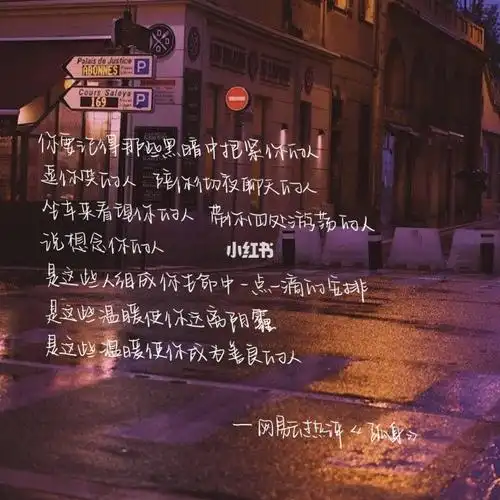 Palais de Justice
ABONNES P
Cours Saleya
169 P
你要记得那些黑暗中抱紧你的人
逗你笑的人 陪你彻夜聊天的人
坐车来看望你的人 带你四处游荡的人
说想念你的人
小红书
是这些人组成你生命中一点一滴的安排
是这些温暖使你远离阴霾
是这些温暖使你成为善良的人
一网易云热评《孤身》